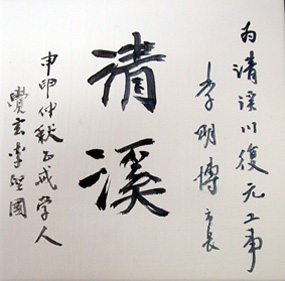 為清溪川復元工事
李明博市長
清溪
申甲仲秋正或学人
覺玄李堅國